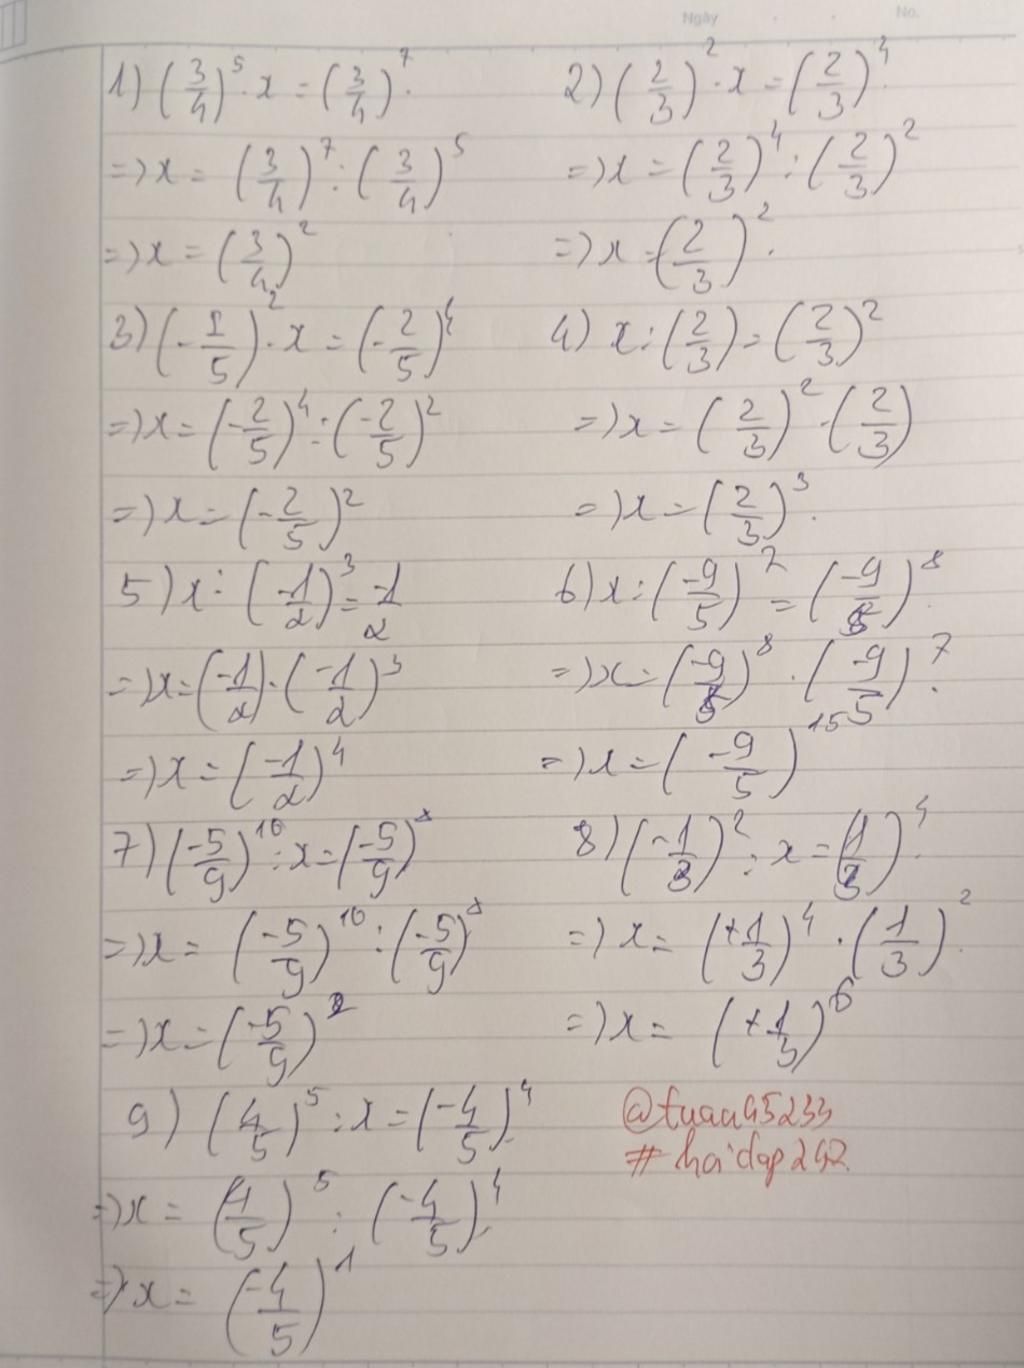 Ngày No.
1) (3/4)^5 · x = (3/4)^7.
=> x = (3/4)^7 : (3/4)^5
=> x = (3/4)^2
2) (2/3)^2 · x = (2/3)^4.
=> x = (2/3)^4 : (2/3)^2
=> x = (2/3)^2.
3) (-2/5)^2 · x = (-2/5)^4
=> x = (-2/5)^4 : (-2/5)^2
=> x = (-2/5)^2
4) x : (2/3) = (2/3)^2
=> x = (2/3)^2 · (2/3)
=> x = (2/3)^3.
5) x : (-1/2)^3 = -1/2
=> x = (-1/2) · (-1/2)^3
=> x = (-1/2)^4
6) x : (-9/5)^7 = (-9/5)^8.
=> x = (-9/5)^8 · (-9/5)^7.
=> x = (-9/5)^15
7) (-5/9)^10 : x = (-5/9)^8
=> x = (-5/9)^10 : (-5/9)^8
=> x = (-5/9)^2
8) (-1/3)^2 : x = (1/3)^4.
=> x = (+1/3)^4 · (1/3)^2.
=> x = (+1/3)^6
9) (4/5)^5 : x = (-4/5)^4.
=> x = (4/5)^5 : (-4/5)^4.
=> x = (-4/5)^1
@tuan45233
#hoidap247.